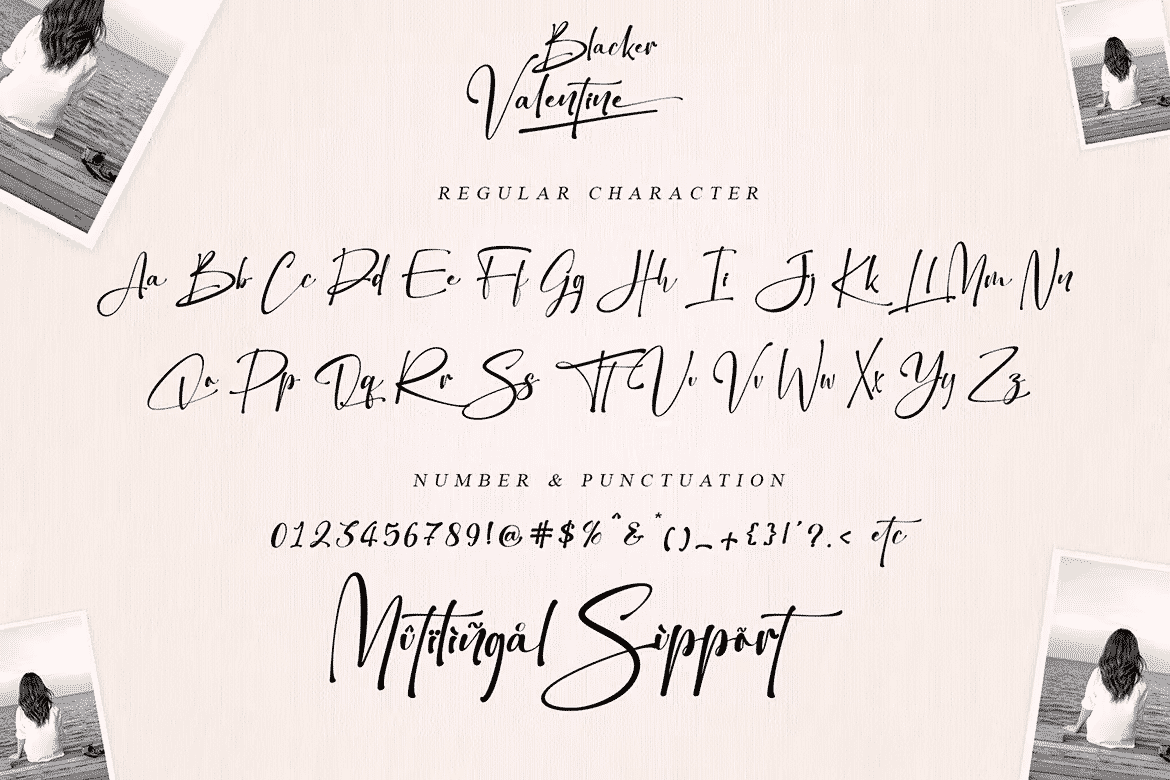 Blacker
Valentine
REGULAR CHARACTER
Aa Bb Cc Dd Ee Ff Gg Hh Ii Jj Kk Ll Mm Nn
Oo Pp Qq Rr Ss Tt Uu Vv Ww Xx Yy Zz
NUMBER & PUNCTUATION
0123456789!@#$%^&*()_+{}|'?.< etc